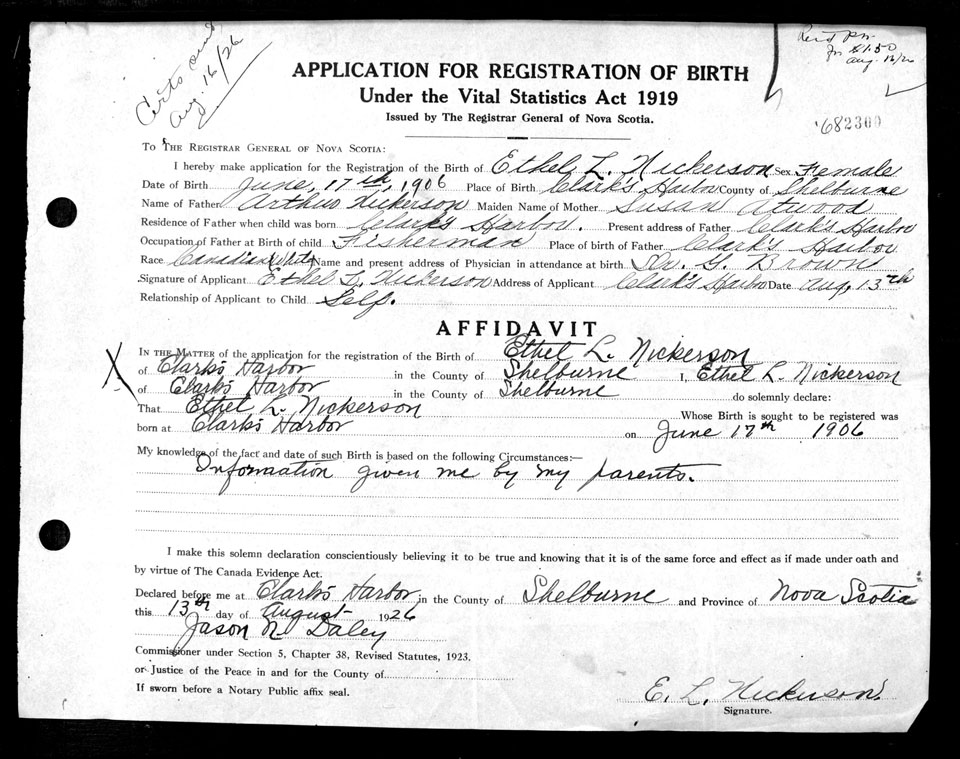 Certs
Aug. 16/26
for $1.50
Aug. 16/26
APPLICATION FOR REGISTRATION OF BIRTH
Under the Vital Statistics Act 1919
Issued by The Registrar General of Nova Scotia.
682300
TO THE REGISTRAR GENERAL OF NOVA SCOTIA:
I hereby make application for the Registration of the Birth of Ethel L. Nickerson Sex Female
Date of Birth June, 17th, 1906 Place of Birth Clark's Harbor County of Shelburne
Name of Father Arthur Nickerson Maiden Name of Mother Susan Atwood
Residence of Father when child was born Clark's Harbor. Present address of Father Clark's Harbor
Occupation of Father at Birth of child Fisherman Place of birth of Father Clark's Harbor
Race Canadian White Name and present address of Physician in attendance at birth Dr. G. Brown
Signature of Applicant Ethel L. Nickerson Address of Applicant Clark's Harbor Date Aug, 13th
Relationship of Applicant to Child Self.
AFFIDAVIT
X IN THE MATTER of the application for the registration of the Birth of Ethel L. Nickerson
of Clark's Harbor in the County of Shelburne I, Ethel L. Nickerson
of Clark's Harbor in the County of Shelburne do solemnly declare:
That Ethel L. Nickerson Whose Birth is sought to be registered was
born at Clark's Harbor on June 17th 1906
My knowledge of the fact and date of such Birth is based on the following Circumstances:—
Information given me by my parents.
I make this solemn declaration conscientiously believing it to be true and knowing that it is of the same force and effect as if made under oath and
by virtue of The Canada Evidence Act.
Declared before me at Clark's Harbor in the County of Shelburne and Province of Nova Scotia
this 13th day of August 1926
Jason N. Daley
Commissioner under Section 5, Chapter 38, Revised Statutes, 1923.
or Justice of the Peace in and for the County of
If sworn before a Notary Public affix seal.
E. L. Nickerson.
Signature.